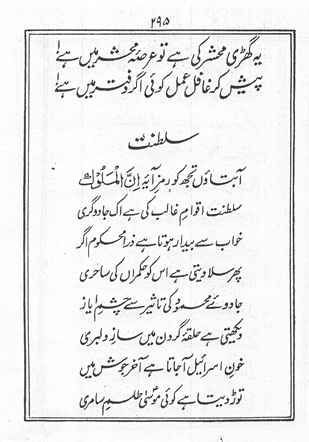 ۲۹۵
یہ گھڑی محشر کی ہے تو عرصۂ محشر میں ہے!
پیش کر غافل عمل کوئی اگر دفتر میں ہے!
سلطنت
آ بتاؤں تجھ کو رمزِ آیۂ اِنَّ الْمُلُوْک
سلطنت اقوامِ غالب کی ہے اک جادوگری
خواب سے بیدار ہوتا ہے ذرا محکوم اگر
پھر سلا دیتی ہے اس کو حکمراں کی ساحری
جادوئے محمود کی تاثیر سے چشمِ ایاز
دیکھتی ہے حلقۂ گردن میں سازِ دلبری
خونِ اسرائیل آجاتا ہے آخر جوش میں
توڑ دیتا ہے کوئی موسیٰ طلسمِ سامری